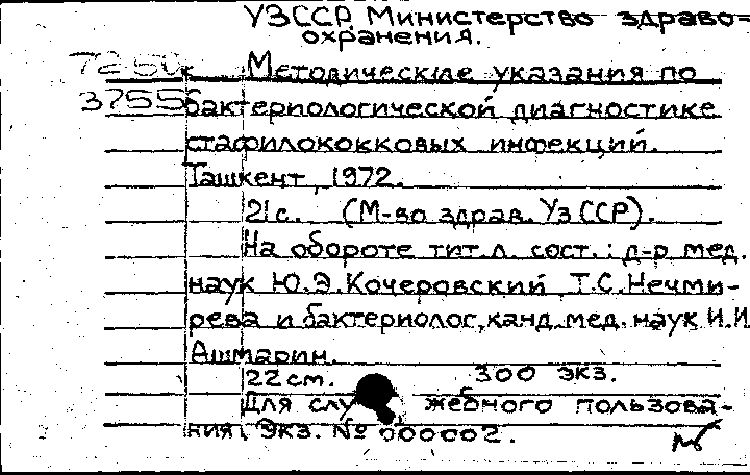 УзССР. Министерство здраво=
охранения.
Методические указания по
бактериологической диагностике
стафилококковых инфекций.
Ташкент, 1972.
21с. (М-во здрав. УзССР).
На обороте тит.л. сост.: д-р мед.
наук Ю.Э.Кочеровский Т.С.Нечми-
рева и бактериолог, канд. мед. наук И.И
Ашмарин.
22см. 300 экз.
Для служебного пользова-
ния, Экз. № 000002.